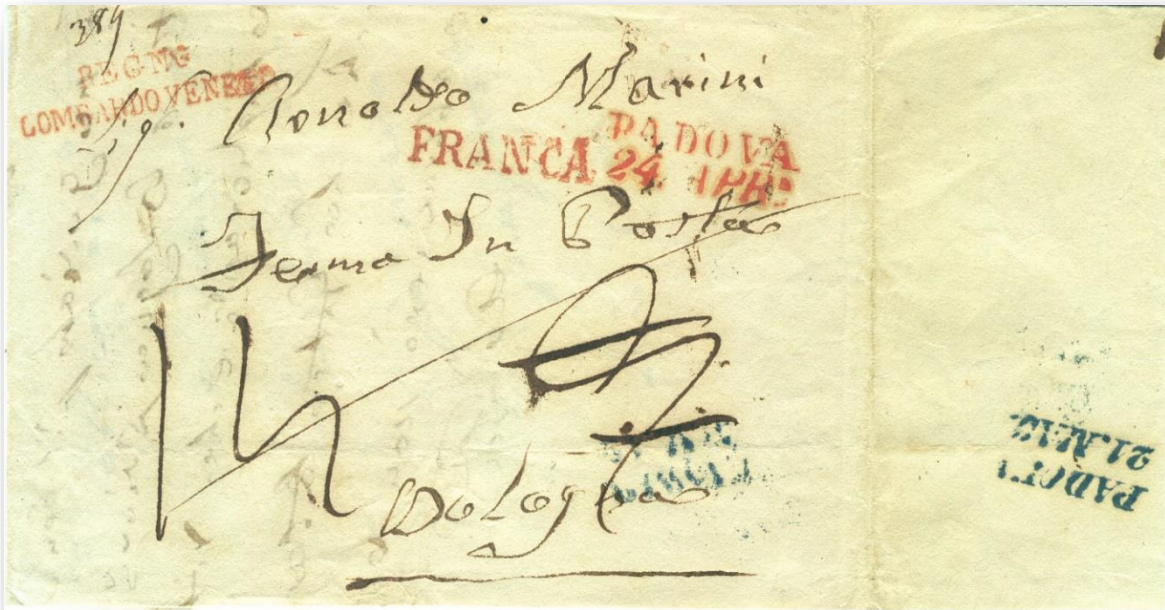 389
REGNO
LOMBARDO VENETO
Sig. Ronoldo Marini
FRANCA
PADOVA
24. APR
Ferma In Posta
Bologna
PADOVA
21. MAG.